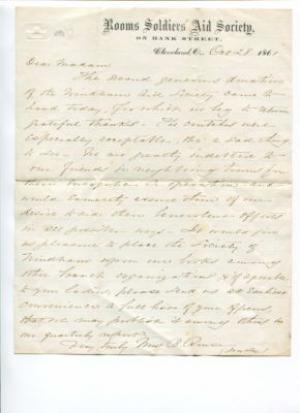 Rooms Soldiers Aid Society,
ON BANK STREET.
Cleveland, O., Oct 28 1861
Dear Madam
The second generous donation
of the Windham Aid Society came to
hand today, for which we beg to return
grateful thanks. The contents were
especially acceptable,
to see. We are greatly indebted to
our friends in neighboring towns for
their cooperation and
would earnestly assure them of our
desire to aid their benevolent efforts
in all possible ways. It would give
us pleasure to place the Society of
Windham upon our books among
other branch organizations, if agreeable
to your ladies, please send us at earliest
convenience a full list of your officers,
that we may publish it among others in
our quarterly report.
Very truly Mrs B. Rouse